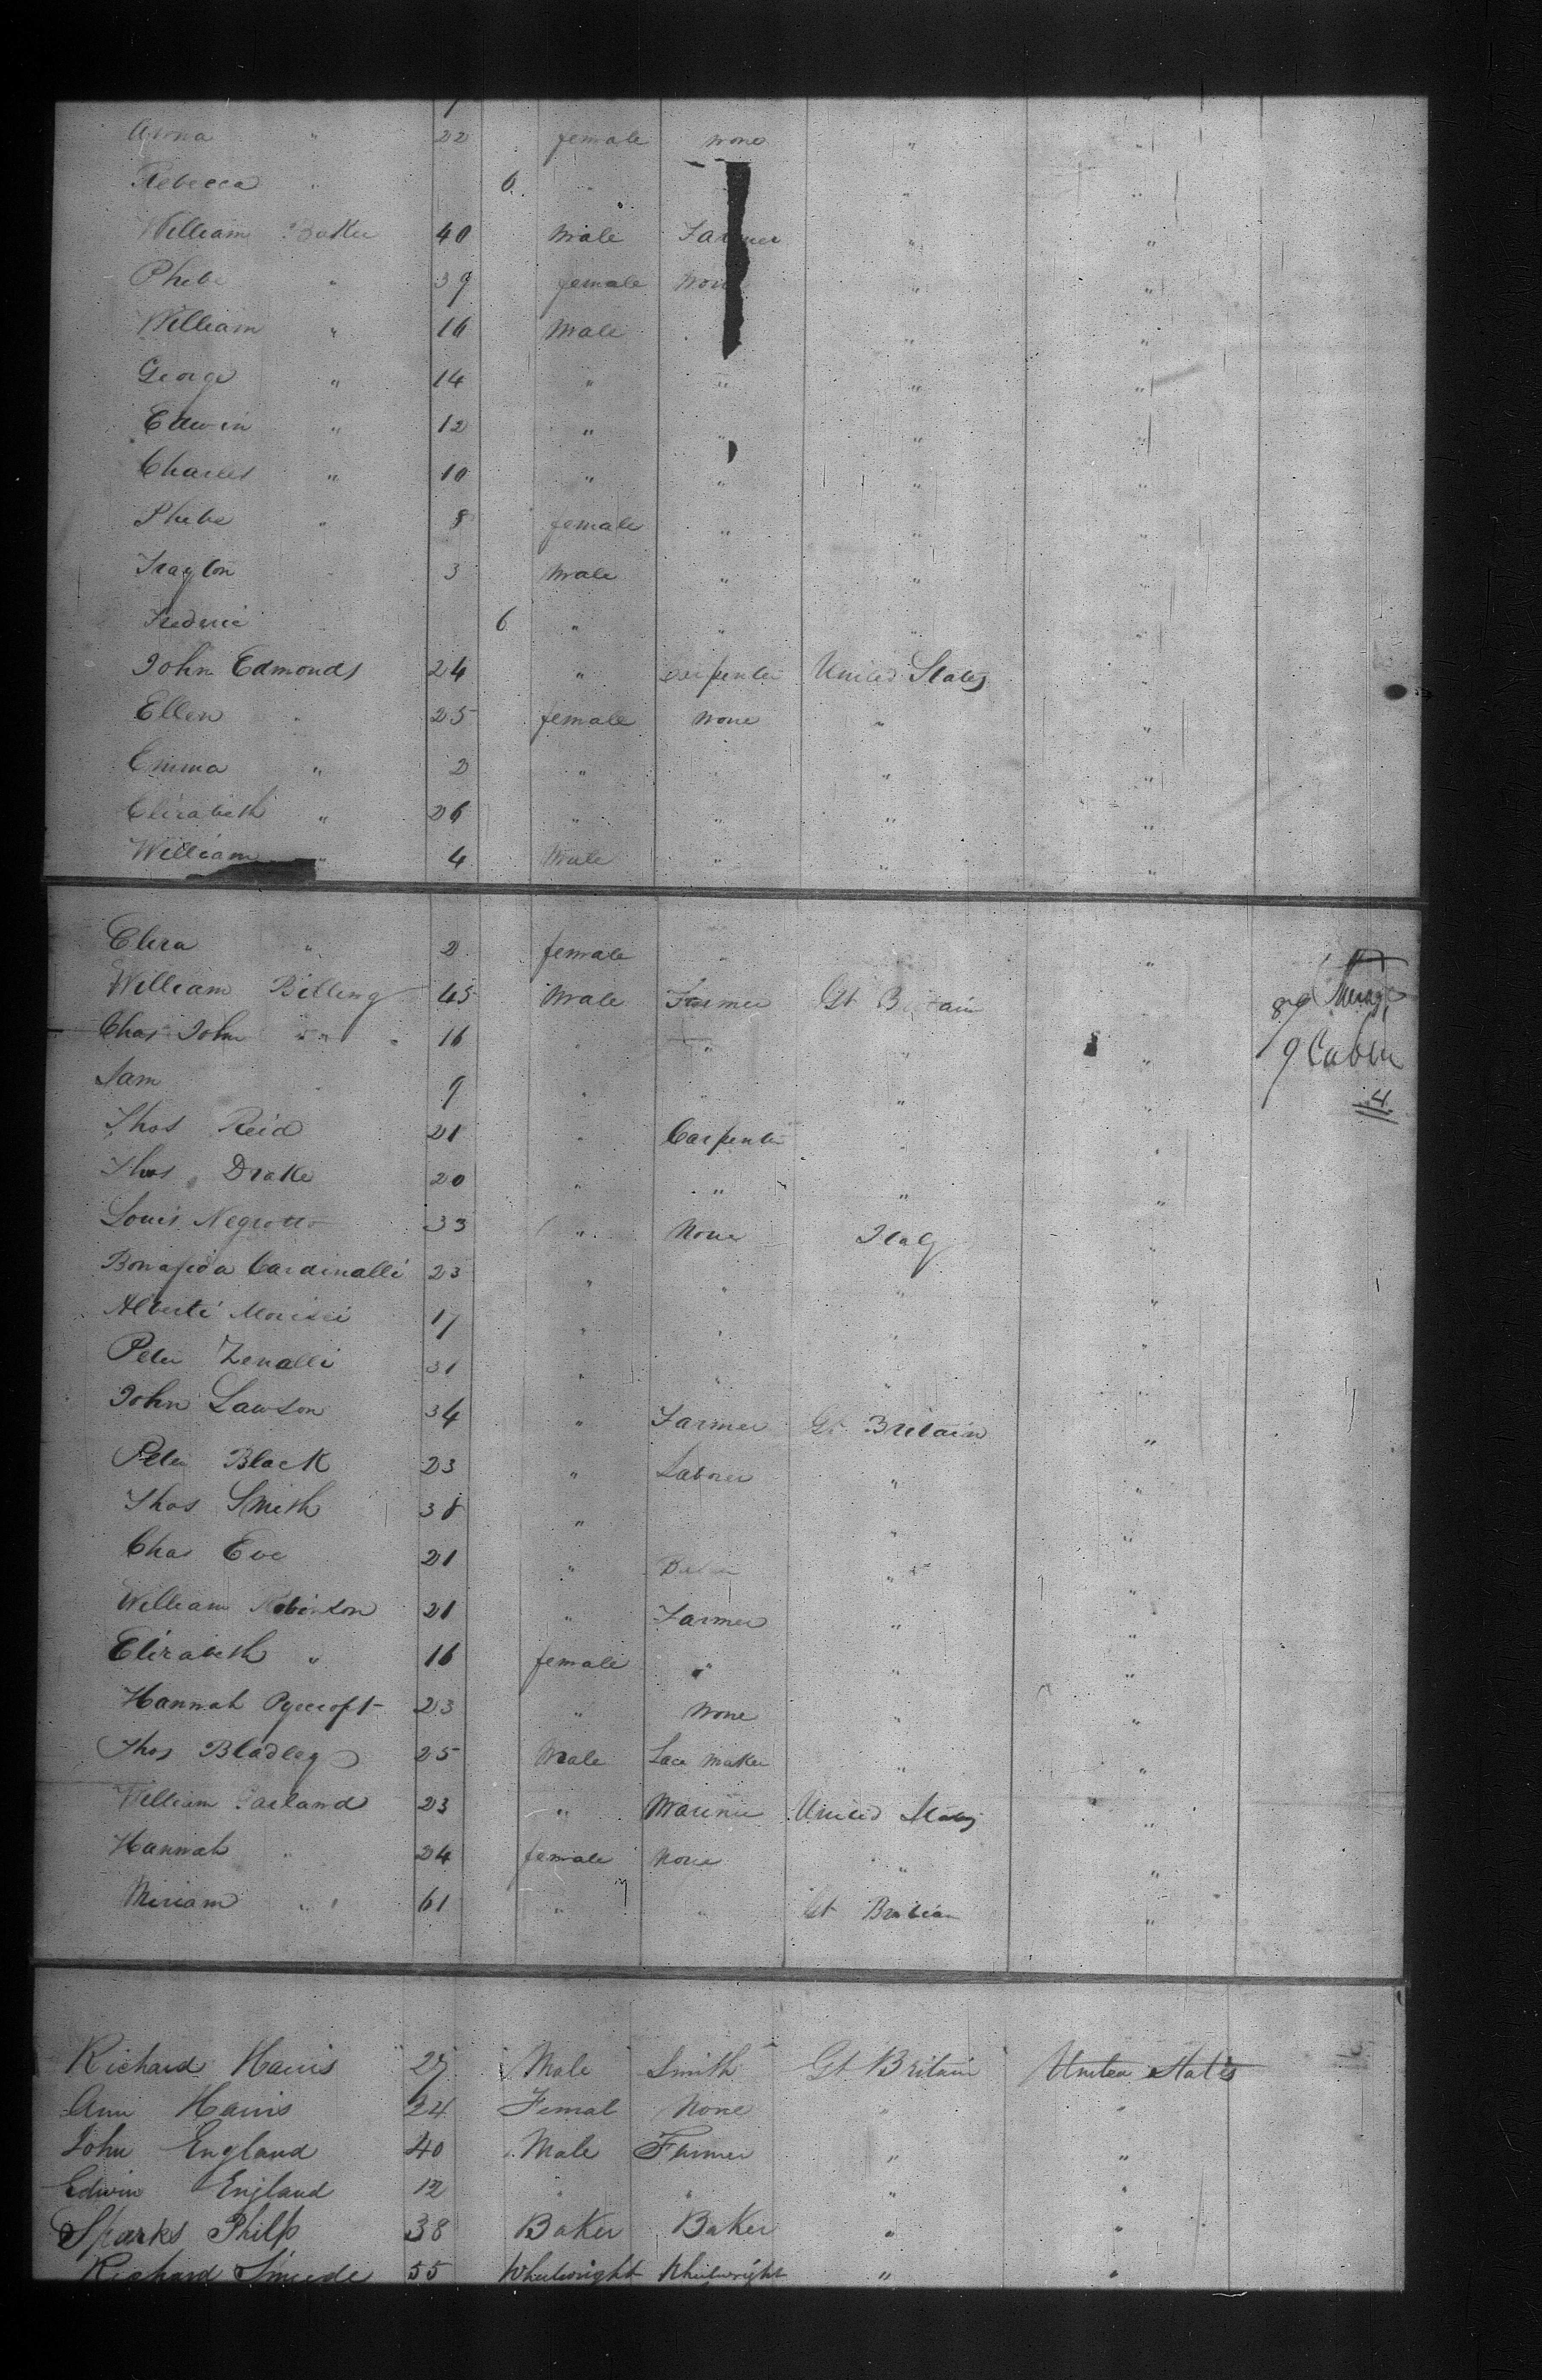 Anna " 22 female none " "
Rebecca " 6 " " " "
William Baker 40 Male Farmer " "
Phebe " 39 female None " "
William " 16 Male " "
George " 14 " " " "
Edwin " 12 " " " "
Charles " 10 " " " "
Phebe " 8 female " " "
3 Male " " "
Frederic 6 " " " "
John Edmonds 24 " Carpenter United States "
Ellen " 25 female None " "
Emma " 2 " " " "
Elizabeth " 26 " " " "
William " 4 Male " " "
2 female " "
William Billing 45 Male Farmer Gt Britain "
Chas John " 16 " " " "
Sam 9 " " " "
Thos Reid 21 " Carpenter " "
Thos Drake 20 " " " "
Louis Negrotto 33 " None Italy "
Cardinalli 23 " " " "
17 " " " "
Peter Zenalli 31 " " " "
John Lawson 34 " Farmer Gt Britain "
Peter Black 23 " Laborer " "
Thos Smith 38 " " "
Chas Eve 21 " " "
William Robinson 21 " Farmer " "
Elizabeth " 16 female " " "
Hannah Pyecroft 23 " None " "
Thos Bladley 25 Male Lace Maker " "
William Garland 23 " Mariner United States "
Hannah " 24 female None " "
Miriam " 61 " " Gt Britian "
9 Cabin
4
Richard Harris 27 Male Smith Gt Britain United States
Ann Harris 24 Femal None " "
John England 40 Male Farmer " "
Edwin England 12 " " " "
Sparks Philp 38 Baker Baker " "
Richard 55 Wheelwright Wheelwright " "